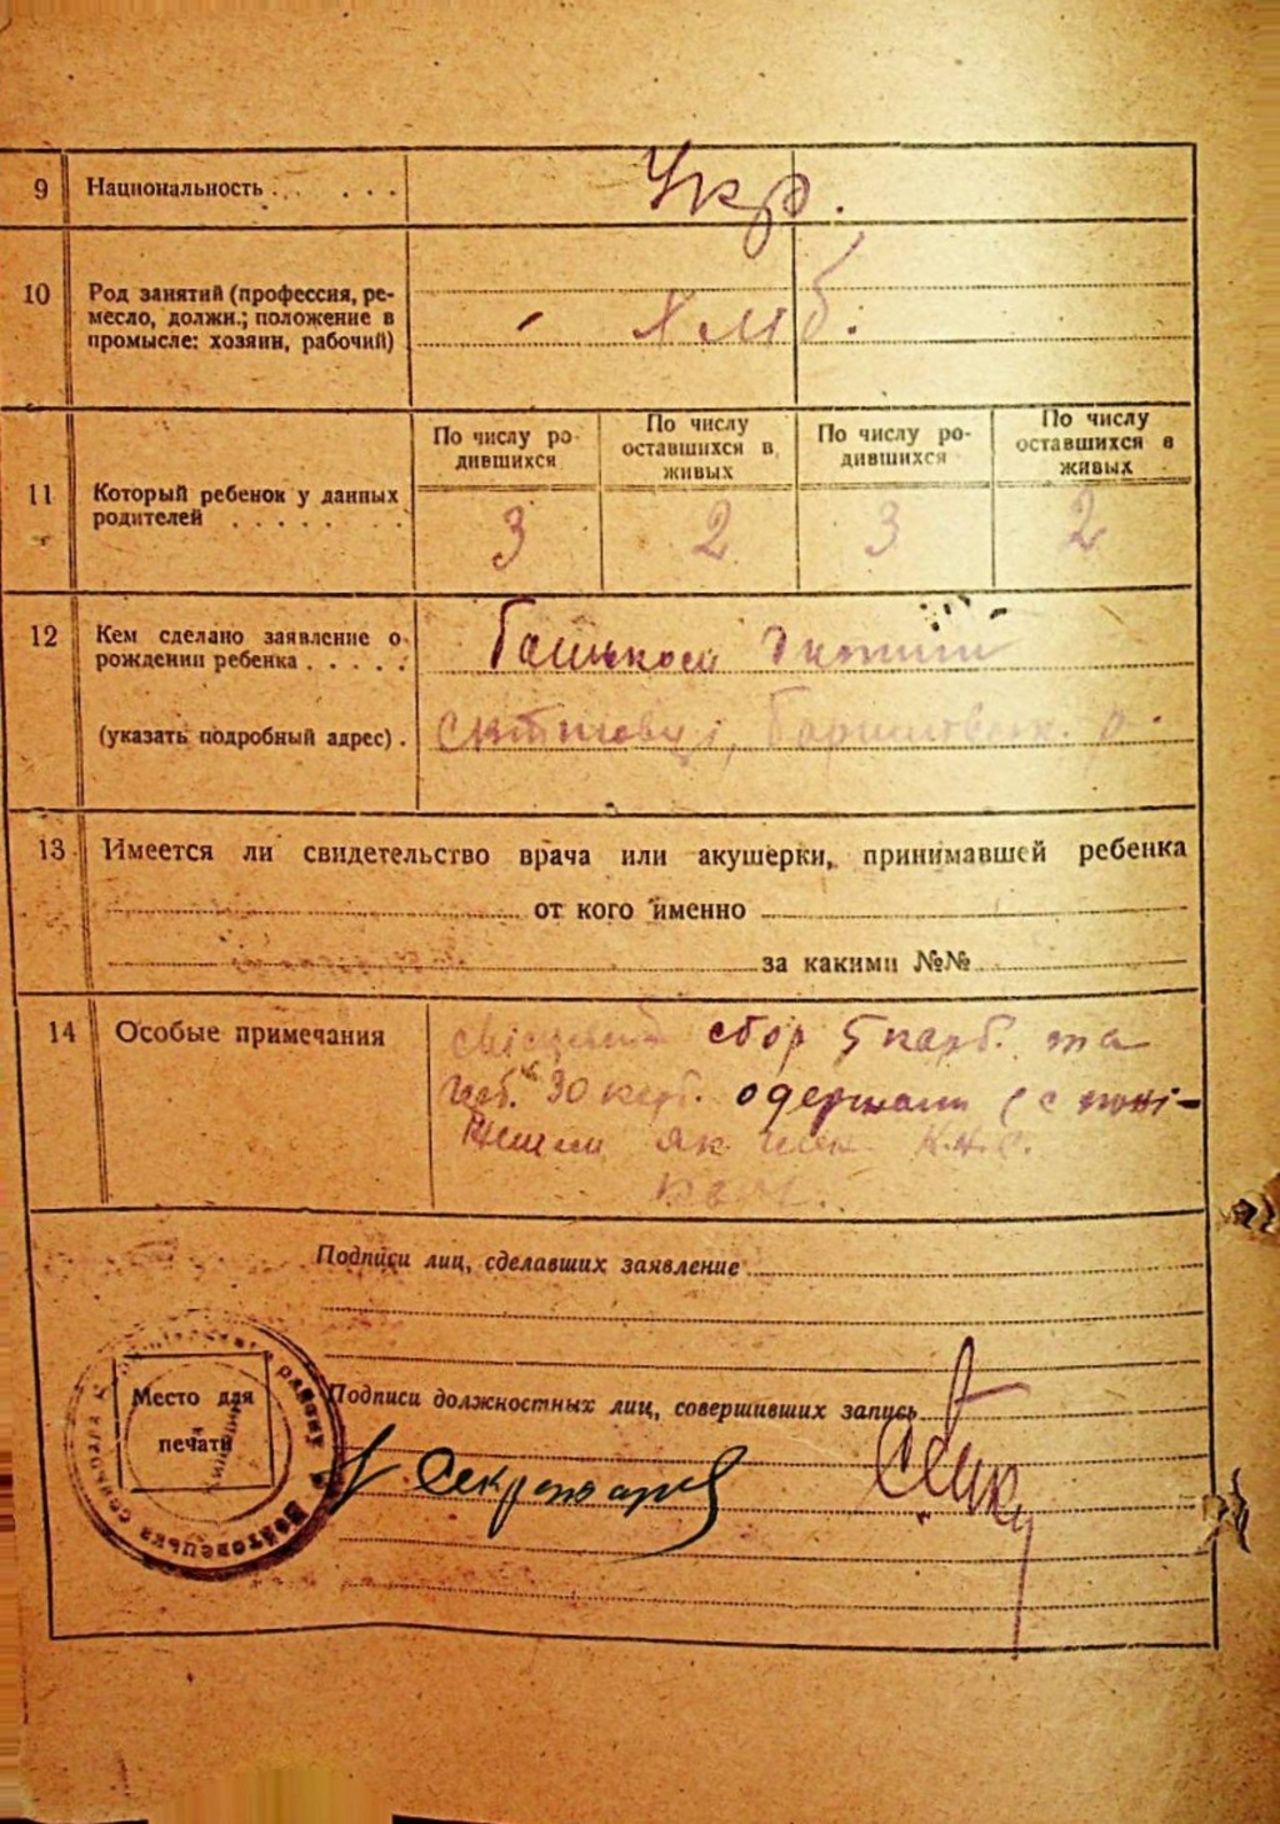 9 Национальность . . . . . . Укр.
10 Род занятий (профессия, ре-
месло, должн.; положение в
промысле: хозяин, рабочий)
- хлиб.
11 Который ребенок у данных
родителей . . . . . . . .
По числу ро-
дившихся
По числу
оставшихся в
живых
По числу ро-
дившихся
По числу
оставшихся в
живых
3 2 3 2
12 Кем сделано заявление о
рождении ребенка . . . . .
Батьком
(указать подробный адрес) .
13 Имеется ли свидетельство врача или акушерки, принимавшей ребенка
от кого именно
за какими №№
14 Особые примечания
сбор 5 карб. та
30 карб. одержали
як член К.Н.С.
Подписи лиц, сделавших заявление
Подписи должностных лиц, совершивших запись
Место для
печати
Секретарь
району
Войтовецька